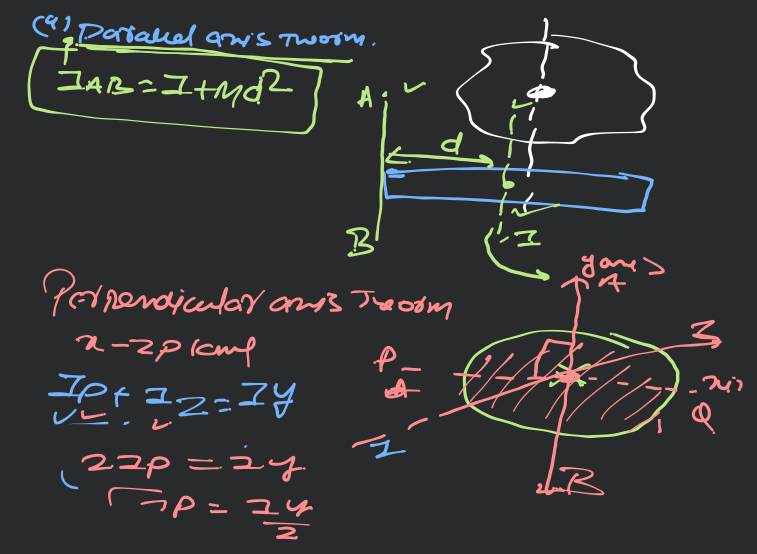 (a) Parallel axis Theorm.
I AB = I + Md²
A
d
B
I
Perpendicular axis Theorm
x-z plane
IP + Iz = Iy
2IP = Iy
IP = Iy
2
y axis
A
Z
P
x-axis
Q
Z
B